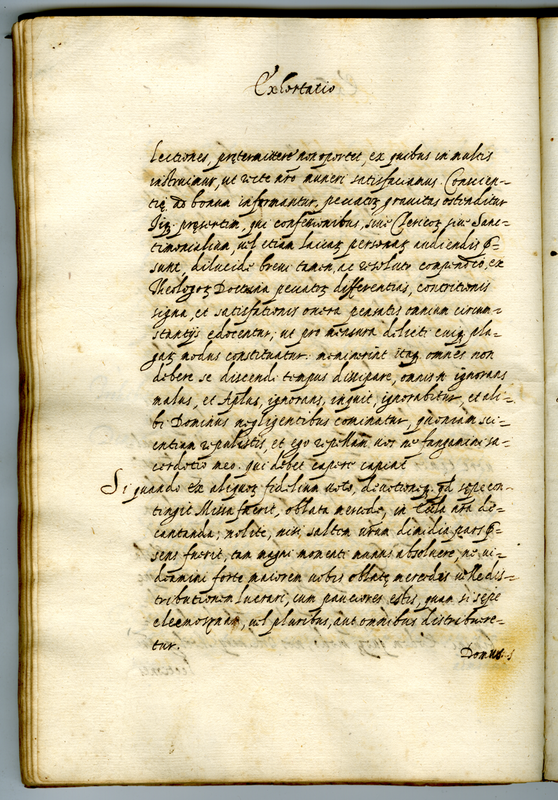 Exhortatio
lectiones, prętermittere non oportet, ex quibus in multis
instruimur, ut recte nro muneri satisfaciamus. Conscien-
tię ad bonum informantur, peccatoꝝ gravitas ostenditur
Ijs presertim, qui confessionibus, sive Clericoꝝ sive Sanc-
timonialium, vel etiam laicaꝝ personaꝝ audiendis p-
sunt, dilucido brevi tamen, ac resoluto compendio, ex
Theologoꝝ Doctrina peccatoꝝ differentias, contritionis
signa, et satisfationis onera pensatis omnium circum-
stantijs edocentur, ut pro mensura delicti cuiq pla-
gaꝝ modus constituatur: meminerint itaq omnes non
debere se discendi tempus dissipare, omnis n ignorans
malus, et Aplus, ignorans, inquit, ignorabitur, et ali-
bi Dominus negligentibus cominatur, quoniam sci-
entiam repulistis, et ego repellam vos ne fungamini sa-
cerdotio meo. qui debet capere capiat
Si quando ex aliquoꝝ fidelium voto, devotioneq, qd sepe con-
tingit Missa fuerit, oblata mercede, in Ecclia nra de-
cantanda; nolite, nisi saltem vram dimidia pars p-
sens fuerit, tam magni momenti munus absolvere, ne vi-
deamini forte maiorem vobis oblatę mercedis velle dis-
tributionem lucrari, cum pauciores estis, quam si sepe
eleemosynam, vel pluribus, aut omnibus distribuere-
tur.
Domus